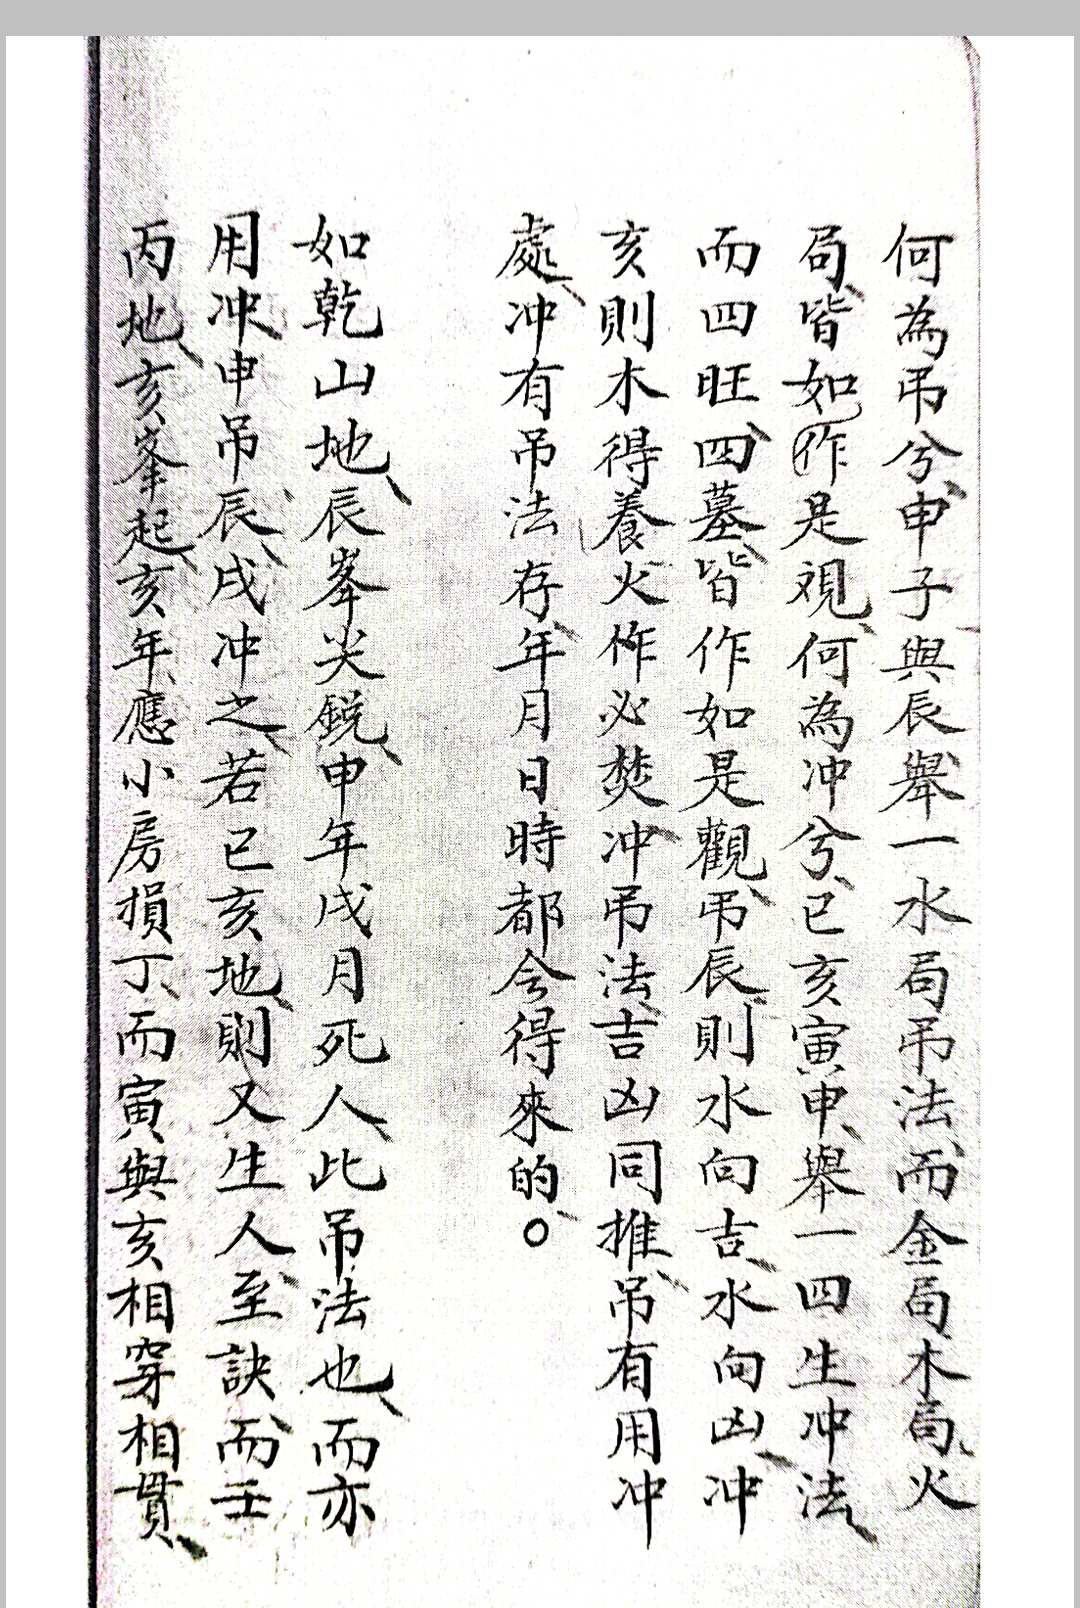 何為吊兮申子與辰舉一水局吊法而金局木局火
局皆如作是視何為冲兮已亥寅申舉一四生冲法
而四旺四墓皆作如是觀吊辰則水向吉水向凶冲
亥則木得養火作必焚冲吊法吉凶同推吊有用冲
處冲有吊法存年月日時都令得來的。
如乾山地辰峯尖鋭申年戌月死人此吊法也而亦
用冲申吊辰戌冲之若已亥地則又生人至訣而壬
丙地亥峯起亥年應小房損丁而寅與亥相穿相貫